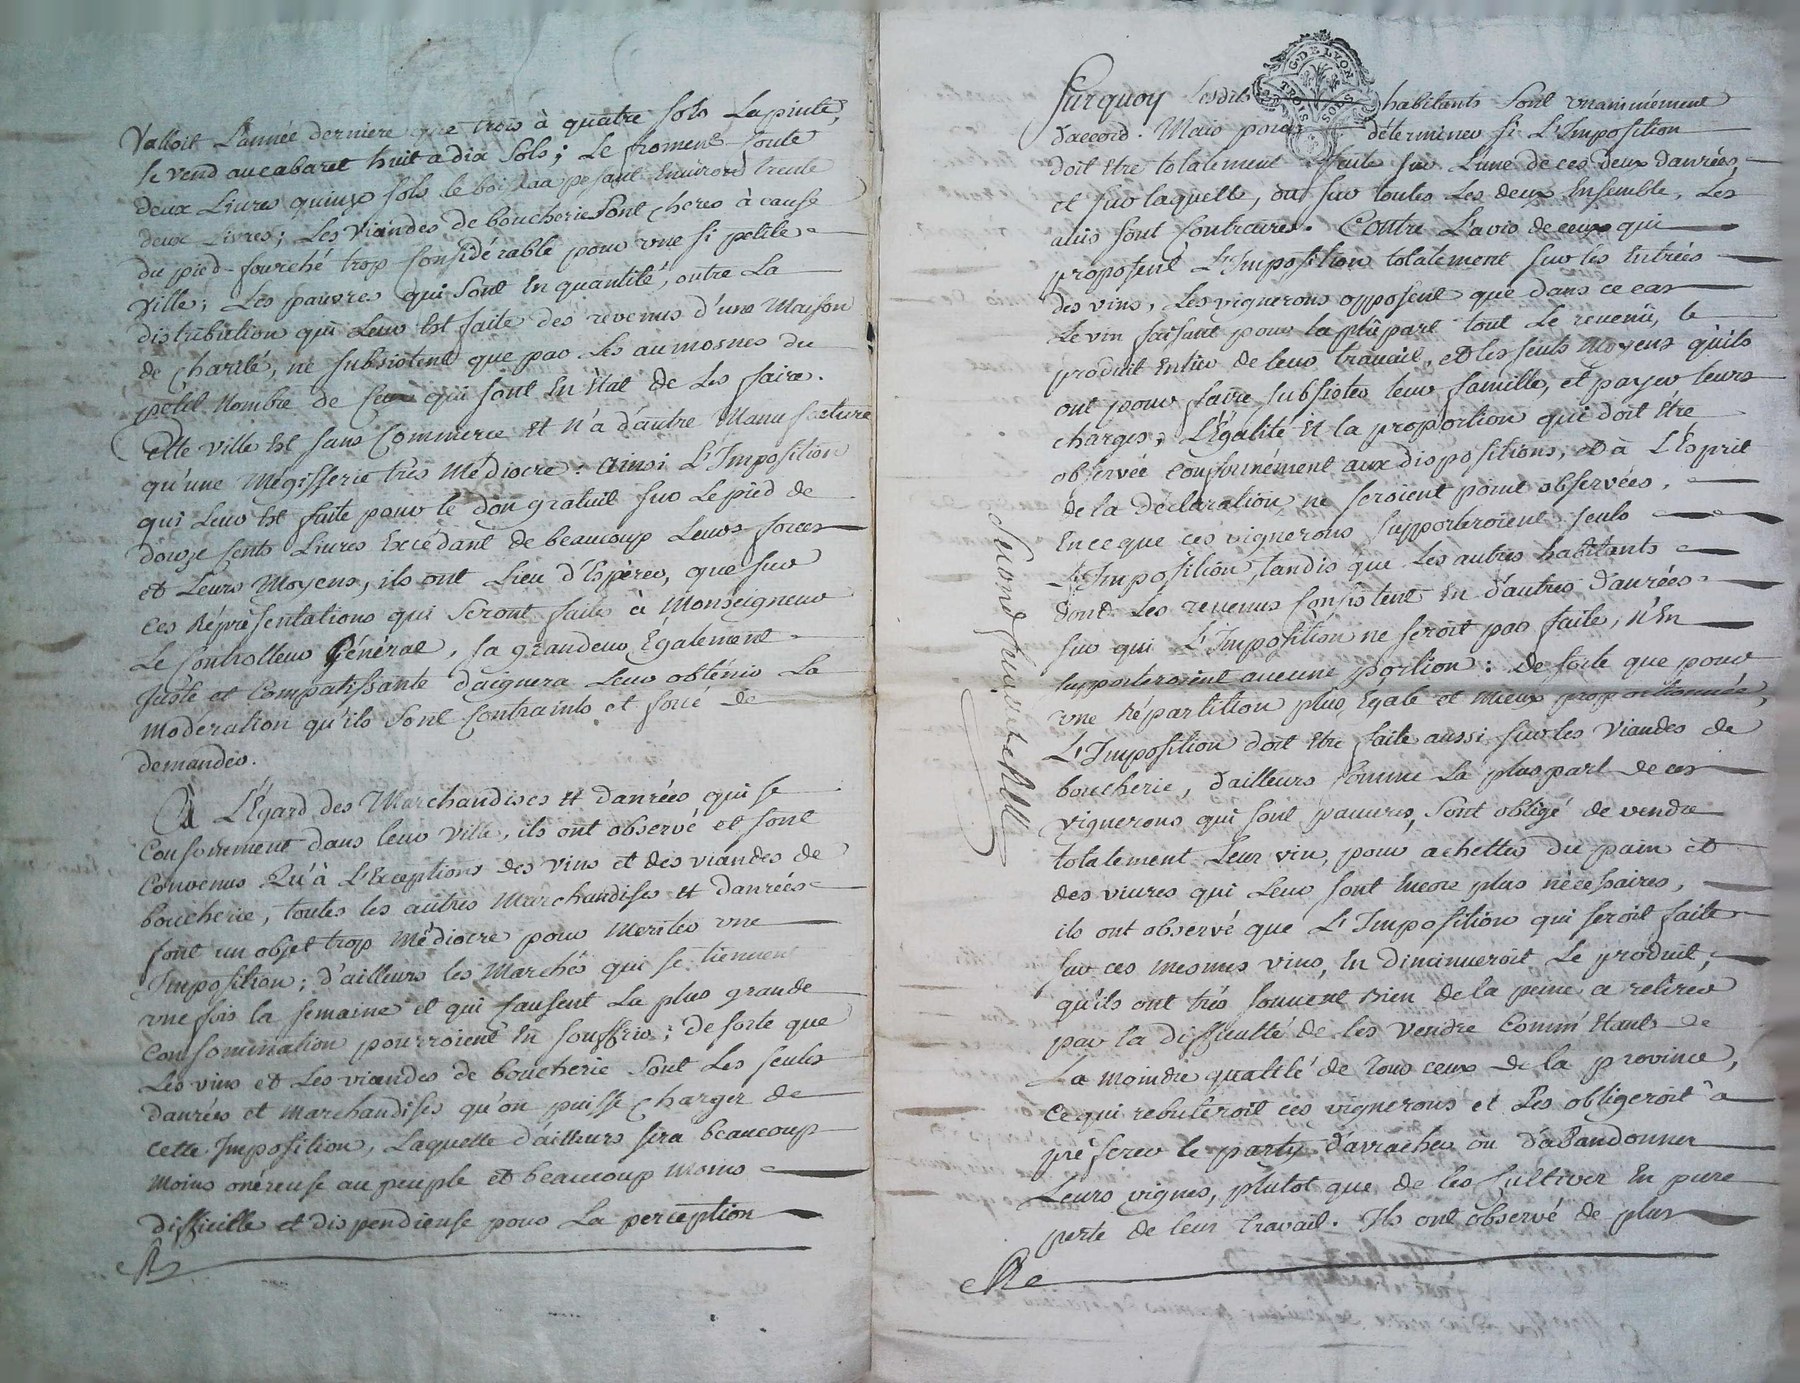 Valloit L'année derniere que trois à quatre sols La pinte,
se vend au cabaret huit a dix sols; Le froment Coute
deux Livres quinze sols le boisseau pesant Environ trente
deux Livres; Les Viandes de boucherie Sont cheres à cause
du pied-fourché trop Considérable pour une si petite
Ville; Les pauvres qui Sont En quantité, outre La
distribution qui Leur Est faite des revenus d'une Maison
de Charité, ne subsistent que par les aumosnes du
petit Nombre de Ceux qui sont En Etat de Les faire.
Cette ville Est sans Commerce Et N'a d'autre Manufacture
qu'une Mégisserie très Médiocre: ainsi L'Imposition
qui Leur Est faite pour le don gratuit sur Le pied de
douze Cents Livres Excédant de beaucoup Leurs forces
et Leurs Moyens, ils ont Lieu d'Espérer, que sur
Ces Représentations qui Seront faite à Monseigneur
Le Controlleur Général, sa grandeur Également
Juste et Compatissante daignera Leur obténir La
Moderation qu'ils Sont Contraints et forcé de
demander.
À L'Égard des Marchandises et danrées qui se
Consomment dans leur Ville, ils ont observé et sont
Convenus Qu'à L'Exceptions des vins et des viandes de
boucherie, toutes les autres Marchandises et danrées
font un objet trop Médiocre pour Meriter une
Imposition; d'ailleurs les Marchés qui se tiennent
une fois la semaine et qui causent La plus grande
Consommation pourroient En Souffrir; de sorte que
Les vins et Les viandes de boucherie Sont Les seules
danrées et Marchandises qu'on puisse Charger de
Cette Imposition, Laquelle d'ailleurs sera beaucoup
Moins onéreuse au peuple et beaucoup Moins
difficille et dispendieuse pour La perception
G. DE LYON
TROIS SOLS
Surquoy Lesdits habitants Sont unanimément
d'accord. Mais pour déterminer si L'Imposition
doit Etre totalement faite sur L'une de ces deux danrées,
et sur laquelle, ou sur toutes Les deux Ensemble, Les
avis sont Contraires. Contre L'avis de ceux qui
proposent L'Imposition totalement sur les Entrées
des vins, Les vignerons opposent que dans ce cas
Le vin faisant pour la plûpart tout Le revenü, le
produit Entier de leur travail, et les seuls Moyens qu'ils
ont pour faire subsister leur famille, et payer leurs
charges, L'Égalité Et la proportion qui doit être
observée Conformément aux dispositions, et à L'Esprit
de la Déclaration, ne seroient point observées,
En ce que ces vignerons supporteroient seuls
L'Imposition, tandis que Les autres habitants
dont Les revenus Consistent En d'autres danrées
sur qui L'Imposition ne seroit pas faite, N'En
supporteroient aucune portion: De sorte que pour
une Répartition plus Egale et Mieux proportionnée,
L'Imposition doit Etre faite aussi sur les Viandes de
boucherie, d'ailleurs Comme La pluspart de ces
vignerons qui sont pauvres, sont obligé de vendre
totalement Leur vin, pour achetter du pain et
des vivres qui Leur sont Encore plus nécessaires,
ils ont observé que L'Imposition qui seroit faite
sur ces mesmes vins, En diminueroit Le produit,
qu'ils ont très souvent bien de la peine a retirer
par la difficulté de les vendre Comm' Etant de
La moindre qualité de Tous ceux de la province,
Ce qui rebuteroit ces vignerons et Les obligeroit à
préferer le party d'arracher ou d'abandonner
Leurs vignes, plutot que de les Cultiver En pure
perte de leur travail. Ils ont observé de plus
Second